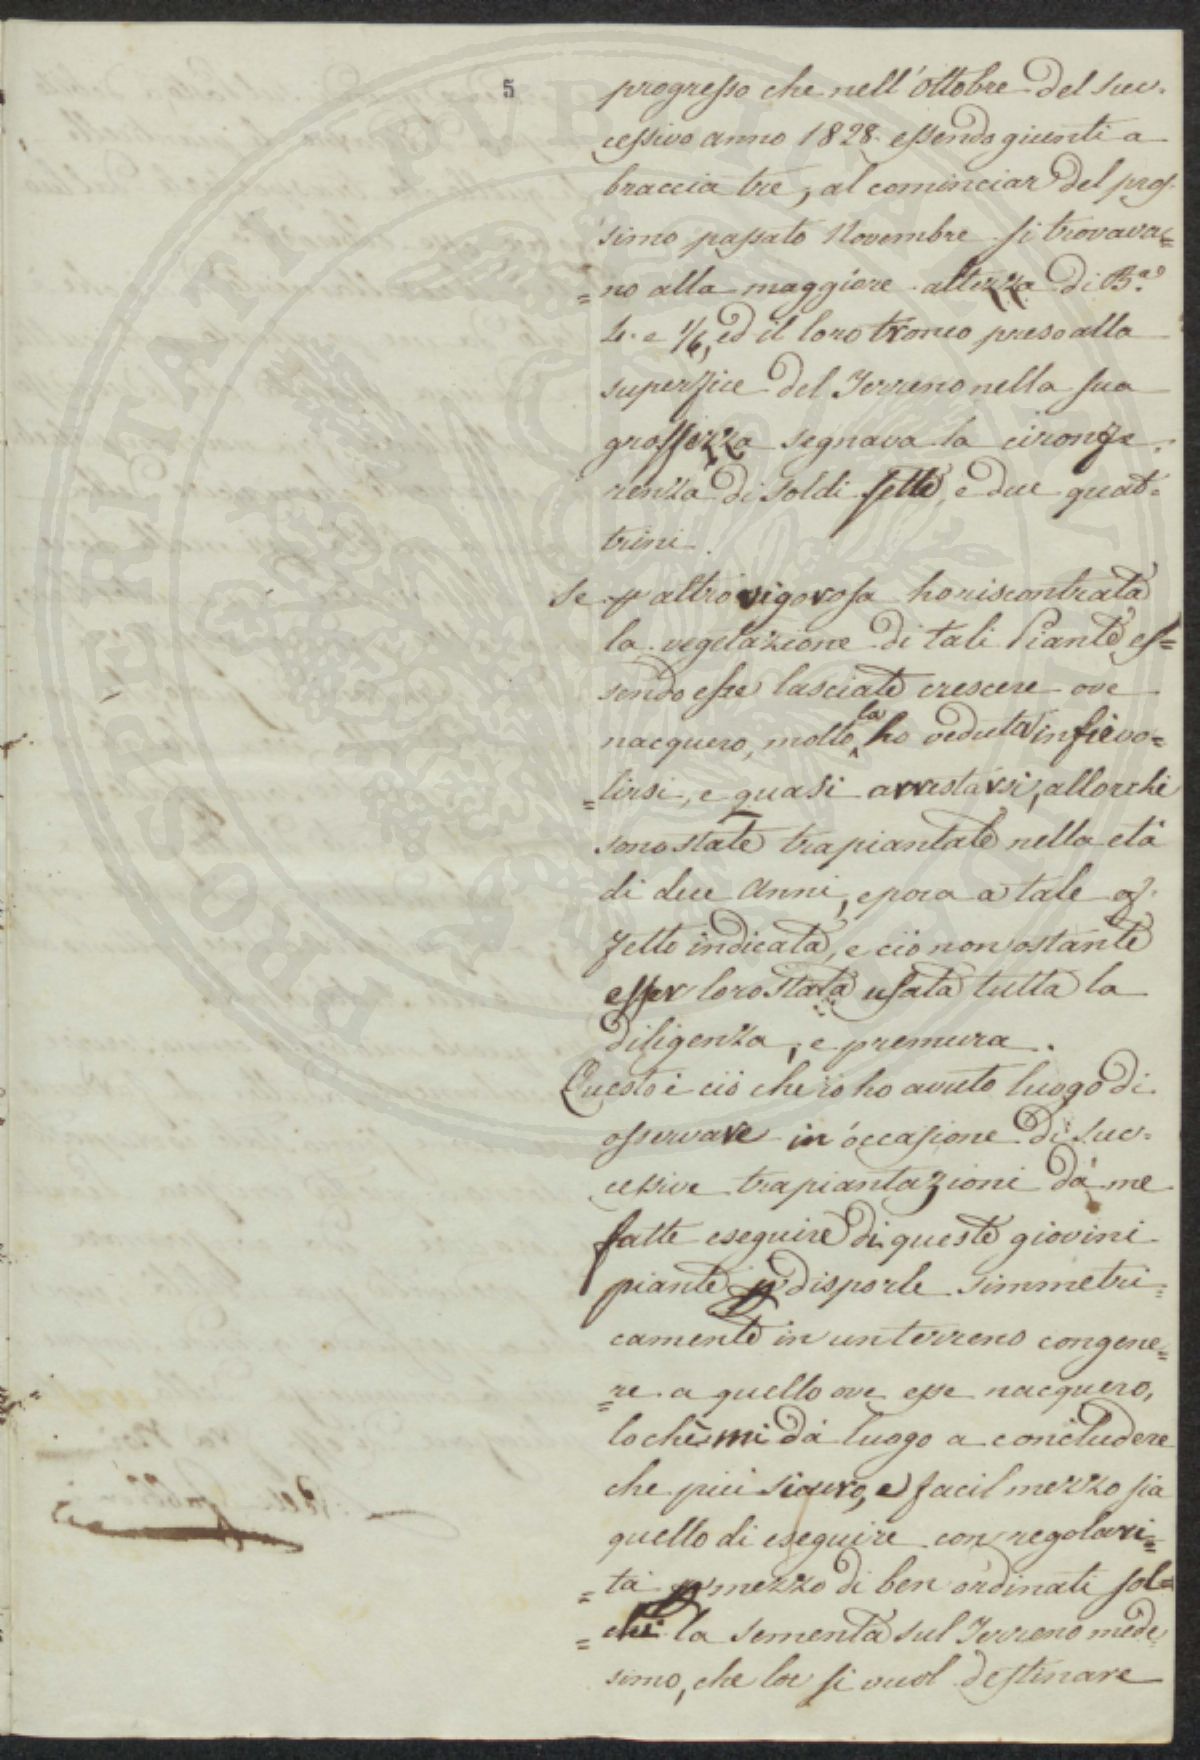 5
progresso che nell'Ottobre del suc-
cessivo anno 1828. essendo giunti a
braccia tre, al cominciar del pros-
simo passato Novembre si trovava=
=no alla maggiore altezza di B.a
4. e 1/6, ed il loro tronco preso alla
superfice del Terreno nella sua
grossezza segnava la circonfe-
renza di soldi sette, e due quat-
trini.
Se p altro vigorosa ho riscontrata
la vegetazione di tali Piante, es=
sendo esse lasciate crescere ove
nacquero, molto la ho veduta infievo=
=lirsi, e quasi arrestarsi, allorchè
sono state trapiantate nella età
di due Anni, epoca a tale og-
getto indicata, e ciò non ostante
esser loro stata usata tutta la
diligenza, e premura.
Questo è ciò che io ho avuto luogo di
osservare in occasione di suc-
cessive trapiantazioni da me
fatte eseguire di queste giovini
piante p disporle simmetri=
camente in un terreno congene=
=re a quello ove esse nacquero,
lochè mi dà luogo a concludere
che più sicuro, e facil mezzo sia
quello di eseguire con regolari=
=tà p mezzo di ben ordinati sol=
=chi la sementa sul Terreno mede-
simo, che lor si vuol destinare
POSTERITATI PVBLICAE VTILITATI